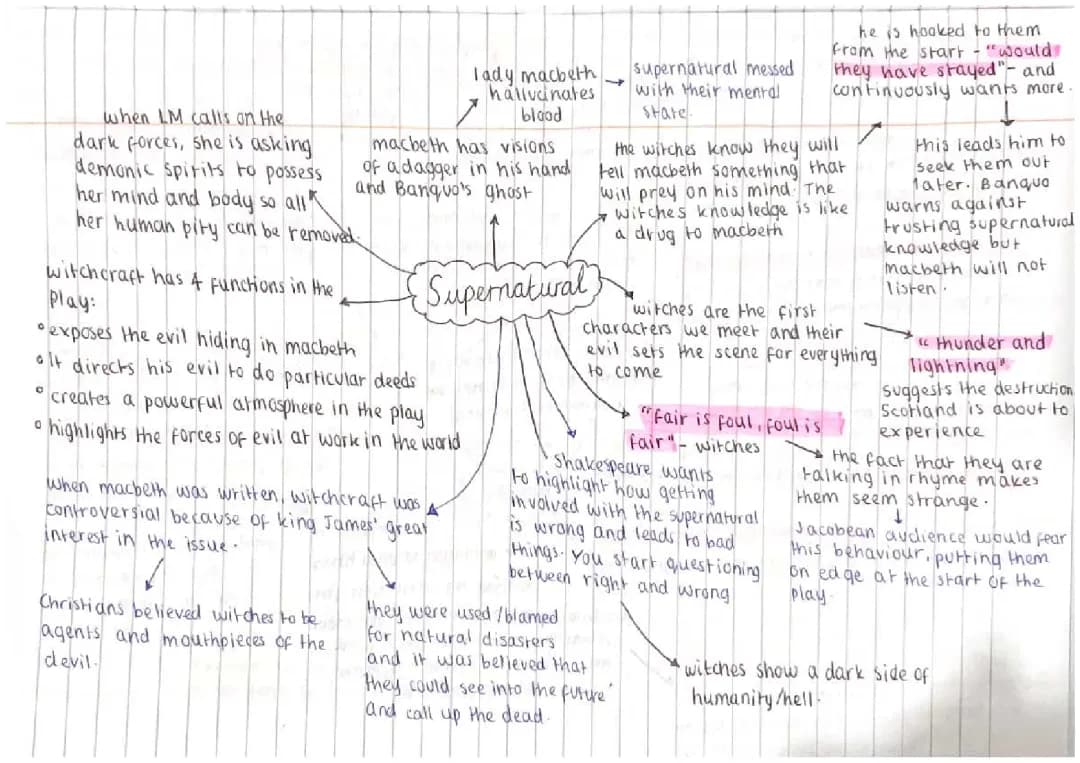 Supernatural
when LM calls on the
dark forces, she is asking
demonic spirits to possess
her mind and body so all
her human pity can be removed.
lady macbeth
hallucinates
blood
supernatural messed
with their mental
state.
macbeth has visions
of a dagger in his hand
and Banquo's ghost
the witches know they will
tell macbeth something that
will prey on his mind. The
witches knowledge is like
a drug to macbeth
he is hooked to them
from the start - "would
they have stayed" - and
continuously wants more.
this leads him to
seek them out
later. Banquo
warns against
trusting supernatural
knowledge but
macbeth will not
listen.
witchcraft has 4 functions in the
play:
• exposes the evil hiding in macbeth
• it directs his evil to do particular deeds
• creates a powerful atmosphere in the play
• highlights the forces of evil at work in the world
witches are the first
characters we meet and their
evil sets the scene for everything
to come
"thunder and
lightning"
suggests the destruction
Scotland is about to
experience
"fair is foul, foul is
fair" - witches
the fact that they are
talking in rhyme makes
them seem strange.
Jacobean audience would fear
this behaviour, putting them
on edge at the start of the
play.
Shakespeare wants
to highlight how getting
involved with the supernatural
is wrong and leads to bad
things. You start questioning
between right and wrong
witches show a dark side of
humanity/hell.
when macbeth was written, witchcraft was
controversial because of king James' great
interest in the issue.
Christians believed witches to be
agents and mouthpieces of the
devil.
they were used/blamed
for natural disasters
and it was believed that
they could see into the future
and call up the dead.